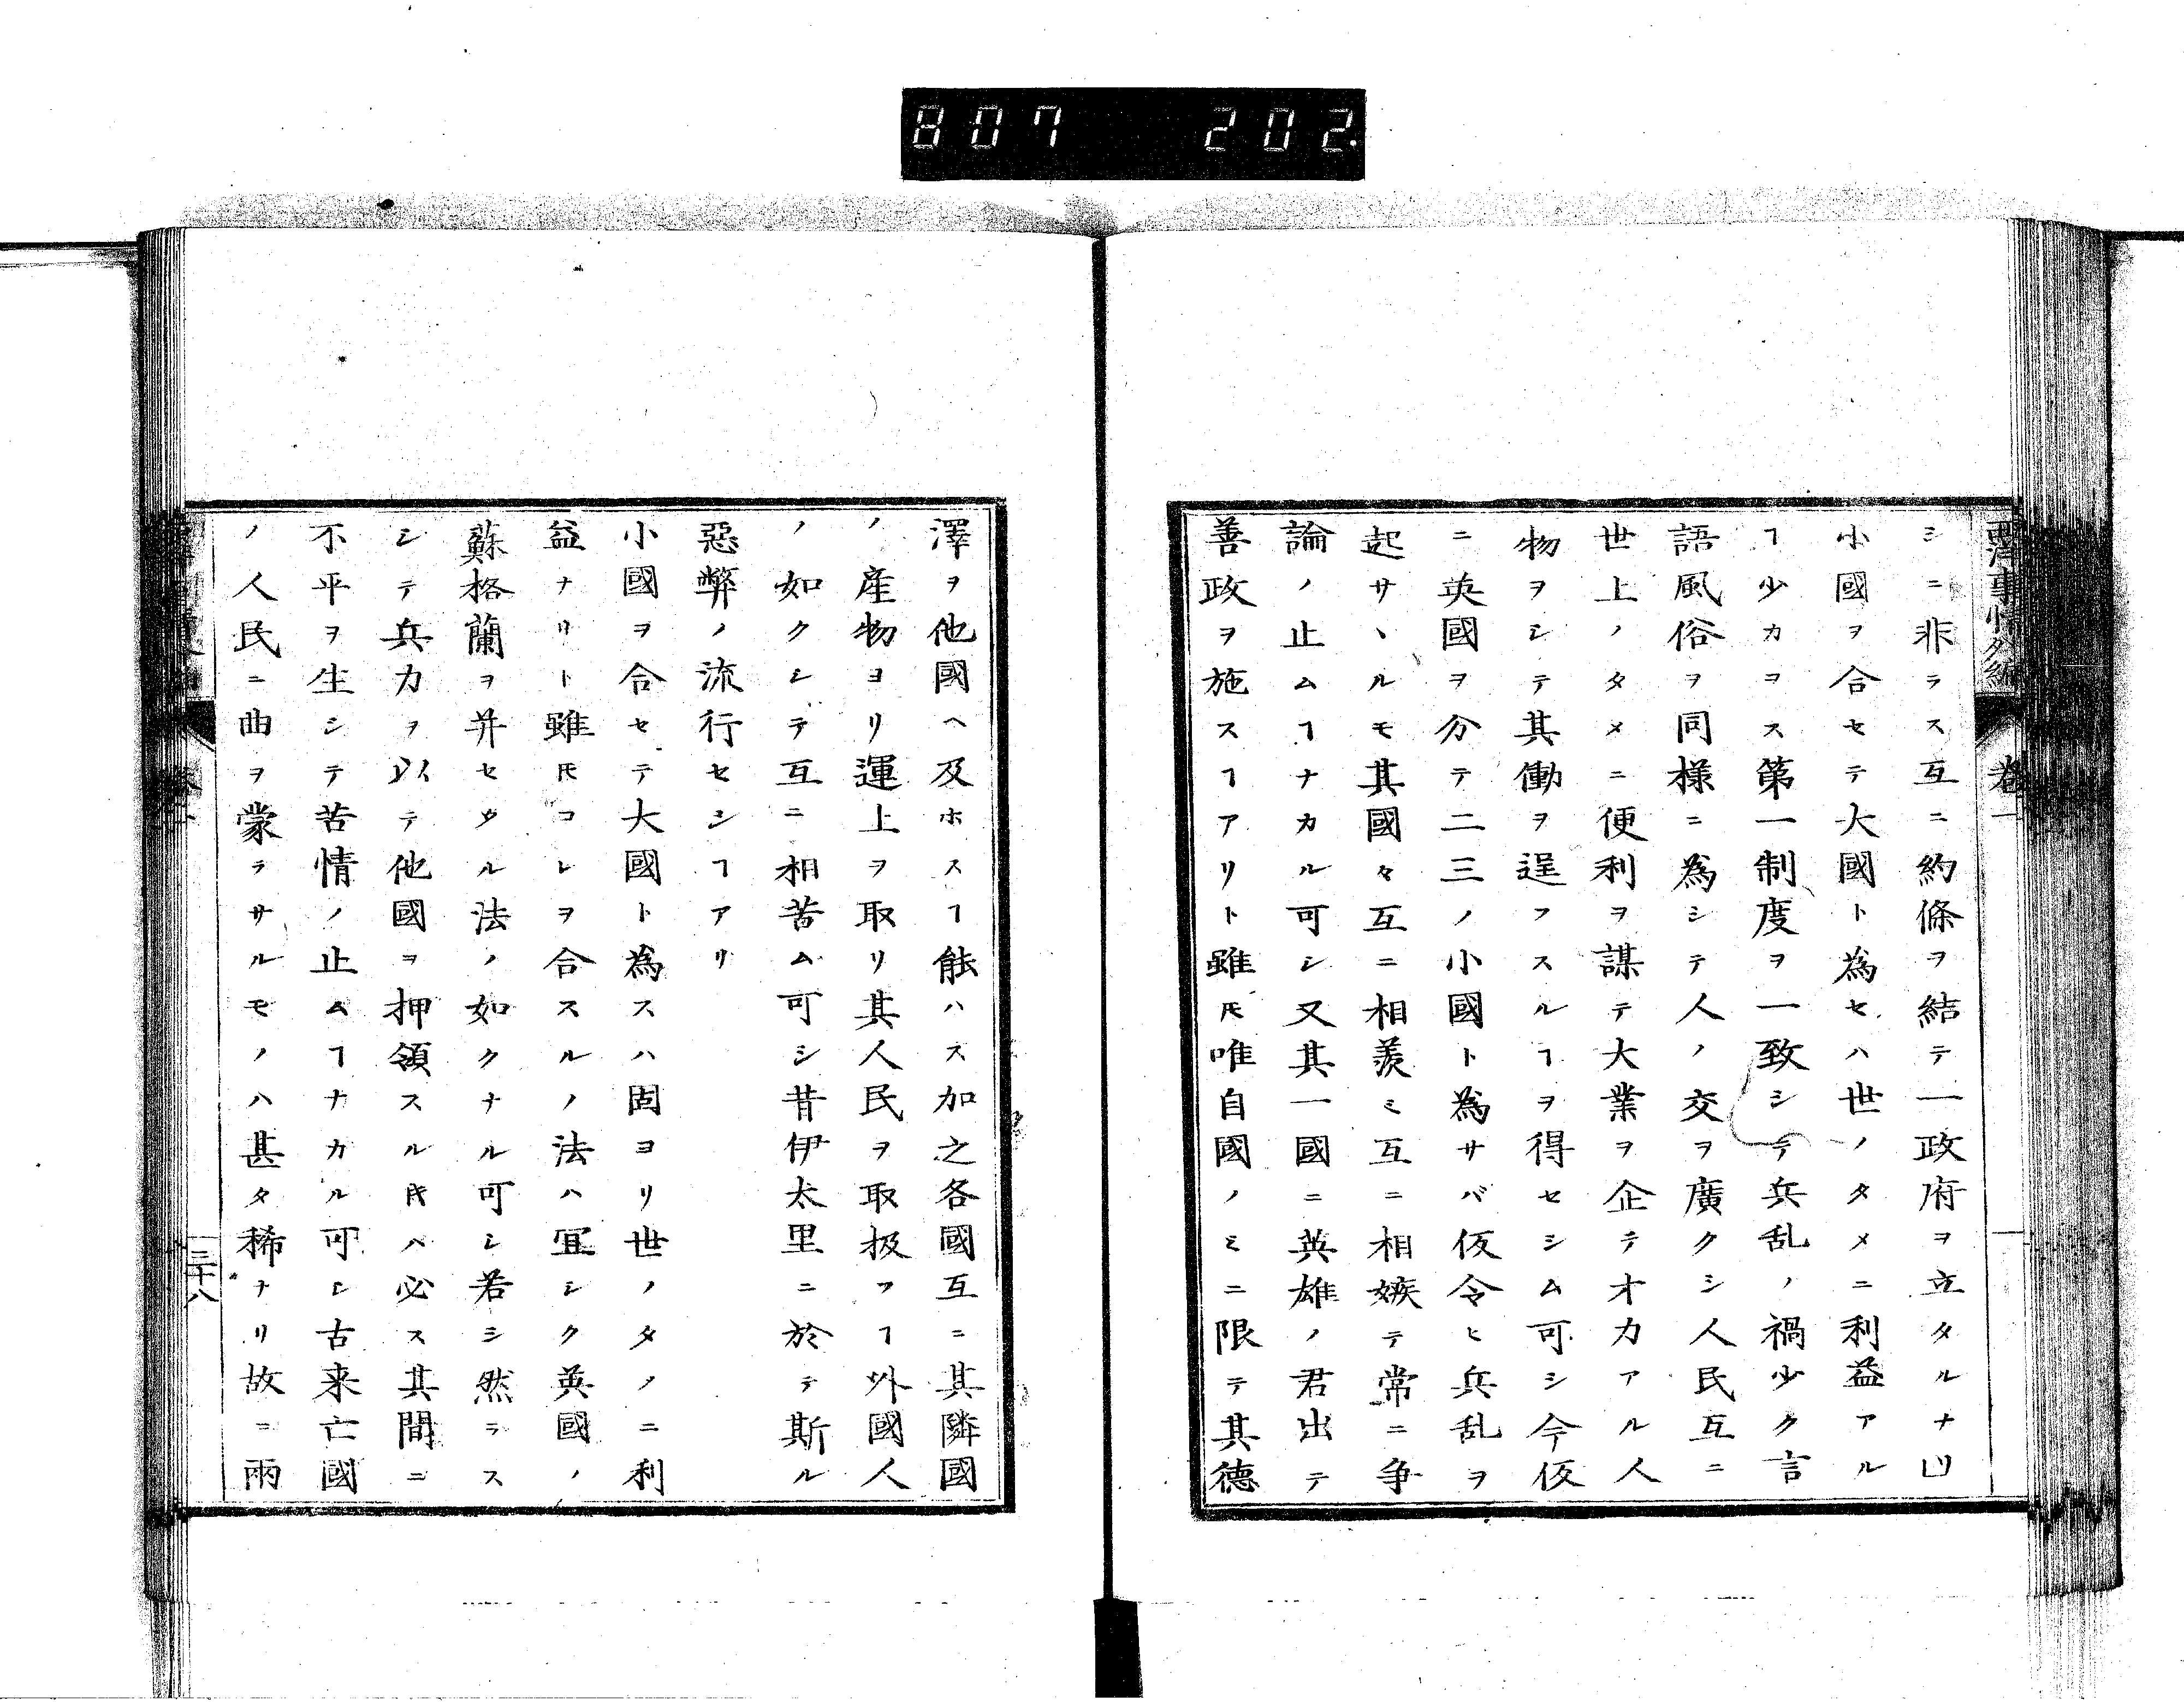 807 202.
西洋事情外編 卷一
シニ非ラス互ニ約條ヲ結テ一政府ヲ立タルナリ凹
小國ヲ合セテ大國ト為セハ世ノタメニ利益アル
ヿ少カヲス第一制度ヲ一致シテ兵乱ノ禍少ク言
語風俗ヲ同様ニ為シテ人ノ交ヲ廣クシ人民互ニ
世上ノタメニ便利ヲ謀テ大業ヲ企テオカアル人
物ヲシテ其働ヲ逞フスルヿヲ得セシム可シ今仮
ニ英國ヲ分テ二三ノ小國ト為サバ仮令ヒ兵乱ヲ
起サヽルモ其國々互ニ相羨ミ互ニ相嫉テ常ニ争
論ノ止ムヿナカル可シ又其一國ニ英雄ノ君出テ
善政ヲ施スヿアリト雖𪜈唯自國ノミニ限テ其德
澤ヲ他國ヘ及ホスヿ能ハス加之各國互ニ其隣國
ノ産物ヨリ運上ヲ取リ其人民ヲ取扱フヿ外國人
ノ如クシテ互ニ相苦ム可シ昔伊太里ニ於テ斯ル
惡弊ノ流行セシヿアリ
小國ヲ合セテ大國ト為スハ固ヨリ世ノタノニ利
益ナリト雖𪜈コレヲ合スルノ法ハ冝シク英國ノ
蘇格蘭ヲ并セタル法ノ如クナル可シ若シ然ラス
シテ兵力ヲ以テ他國ヲ押領スル𪜈ハ必ス其間ニ
不平ヲ生シテ苦情ノ止ムヿナカル可シ古来亡國
ノ人民ニ曲ヲ蒙ラサルモノハ甚タ稀ナリ故ニ兩
三十八